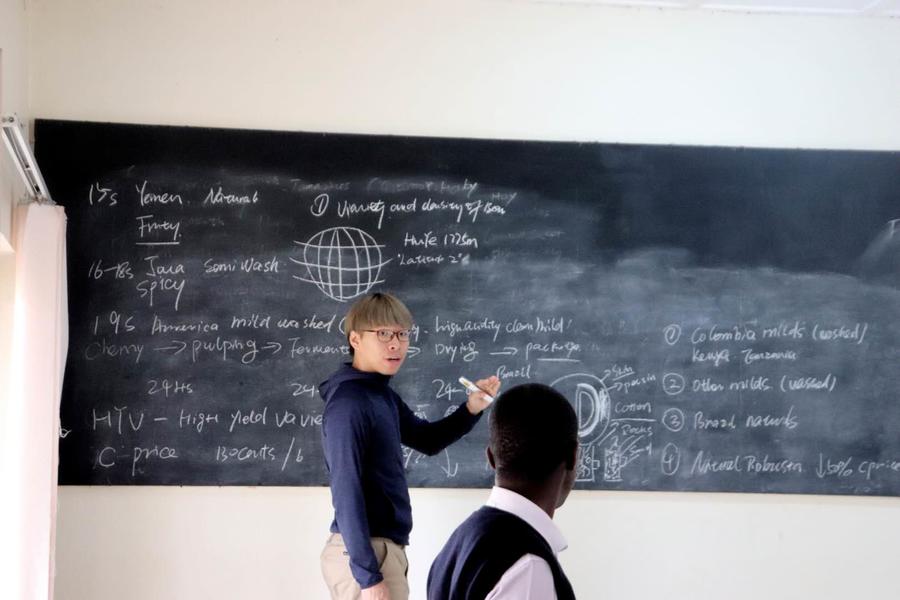 15s Yemen. Natural
Fruity
16-18s Java Semi Wash
Spicy
① Variety and density of Bean
Huye 1775m
Latitude 2°s
19s America mild washed (
high acidity clean mild!
Cherry → pulping → Ferment
→ Drying → package
24Hrs
24
24-
Brazil
HYV - High yield varie
C-price 130cents/lb
% ↓
Skin
Cotton
① Colombia milds (washed)
Kenya Tanzania
② Other milds (washed)
③ Brazil naturals
④ Natural Robusta ↓50% c price